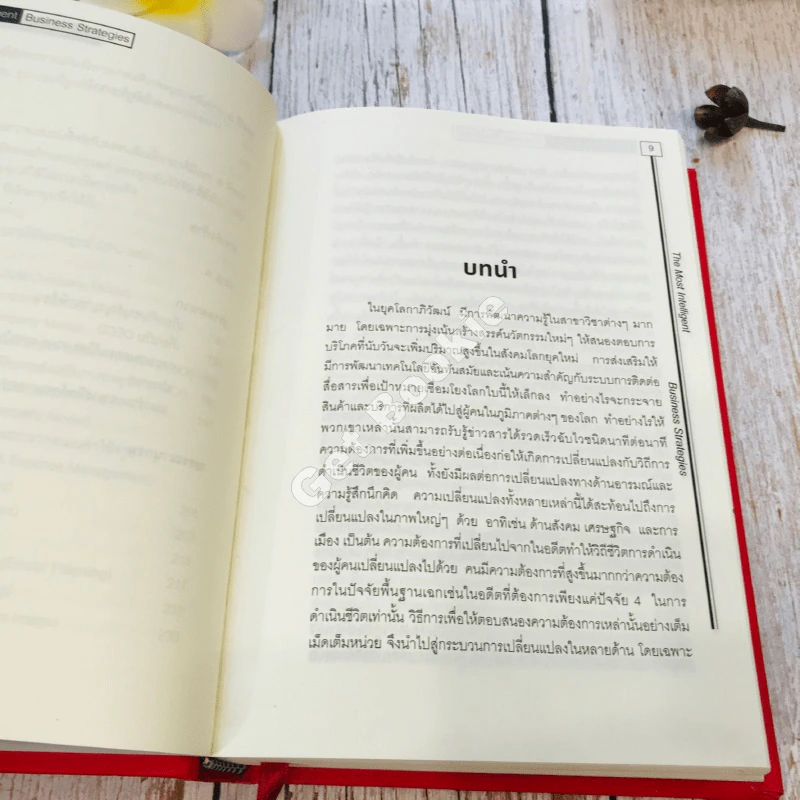 ent Business Strategies
9
The Most Intelligent Business Strategies
บทนำ
ในยุคโลกาภิวัฒน์ มีการพัฒนาความรู้ในสาขาวิชาต่างๆ มาก
มาย โดยเฉพาะการมุ่งเน้นสร้างสรรค์นวัตกรรมใหม่ๆ ให้สนองตอบการ
บริโภคที่นับวันจะเพิ่มปริมาณสูงขึ้นในสังคมโลกยุคใหม่ การส่งเสริมให้
มีการพัฒนาเทคโนโลยีอันทันสมัยและเน้นความสำคัญกับระบบการติดต่อ
สื่อสารเพื่อเป้าหมายเชื่อมโยงโลกใบนี้ให้เล็กลง ทำอย่างไรจะกระจาย
สินค้าและบริการที่ผลิตได้ไปสู่ผู้คนในภูมิภาคต่างๆ ของโลก ทำอย่างไรให้
พวกเขาเหล่านั้นสามารถรับรู้ข่าวสารได้รวดเร็วฉับไวชนิดนาทีต่อนาที
ความต้องการที่เพิ่มขึ้นอย่างต่อเนื่องก่อให้เกิดการเปลี่ยนแปลงกับวิถีการ
ดำเนินชีวิตของผู้คน ทั้งยังมีผลต่อการเปลี่ยนแปลงทางด้านอารมณ์และ
ความรู้สึกนึกคิด ความเปลี่ยนแปลงทั้งหลายเหล่านี้ได้สะท้อนไปถึงการ
เปลี่ยนแปลงในภาพใหญ่ๆ ด้วย อาทิเช่น ด้านสังคม เศรษฐกิจ และการ
เมือง เป็นต้น ความต้องการที่เปลี่ยนไปจากในอดีตทำให้วิถีชีวิตการดำเนิน
ของผู้คนเปลี่ยนแปลงไปด้วย คนมีความต้องการที่สูงขึ้นมากกว่าความต้อง
การในปัจจัยพื้นฐานเฉกเช่นในอดีตที่ต้องการเพียงแค่ปัจจัย 4 ในการ
ดำเนินชีวิตเท่านั้น วิธีการเพื่อให้ตอบสนองความต้องการเหล่านั้นอย่างเต็ม
เม็ดเต็มหน่วย จึงนำไปสู่กระบวนการเปลี่ยนแปลงในหลายด้าน โดยเฉพาะ
Get Bookie